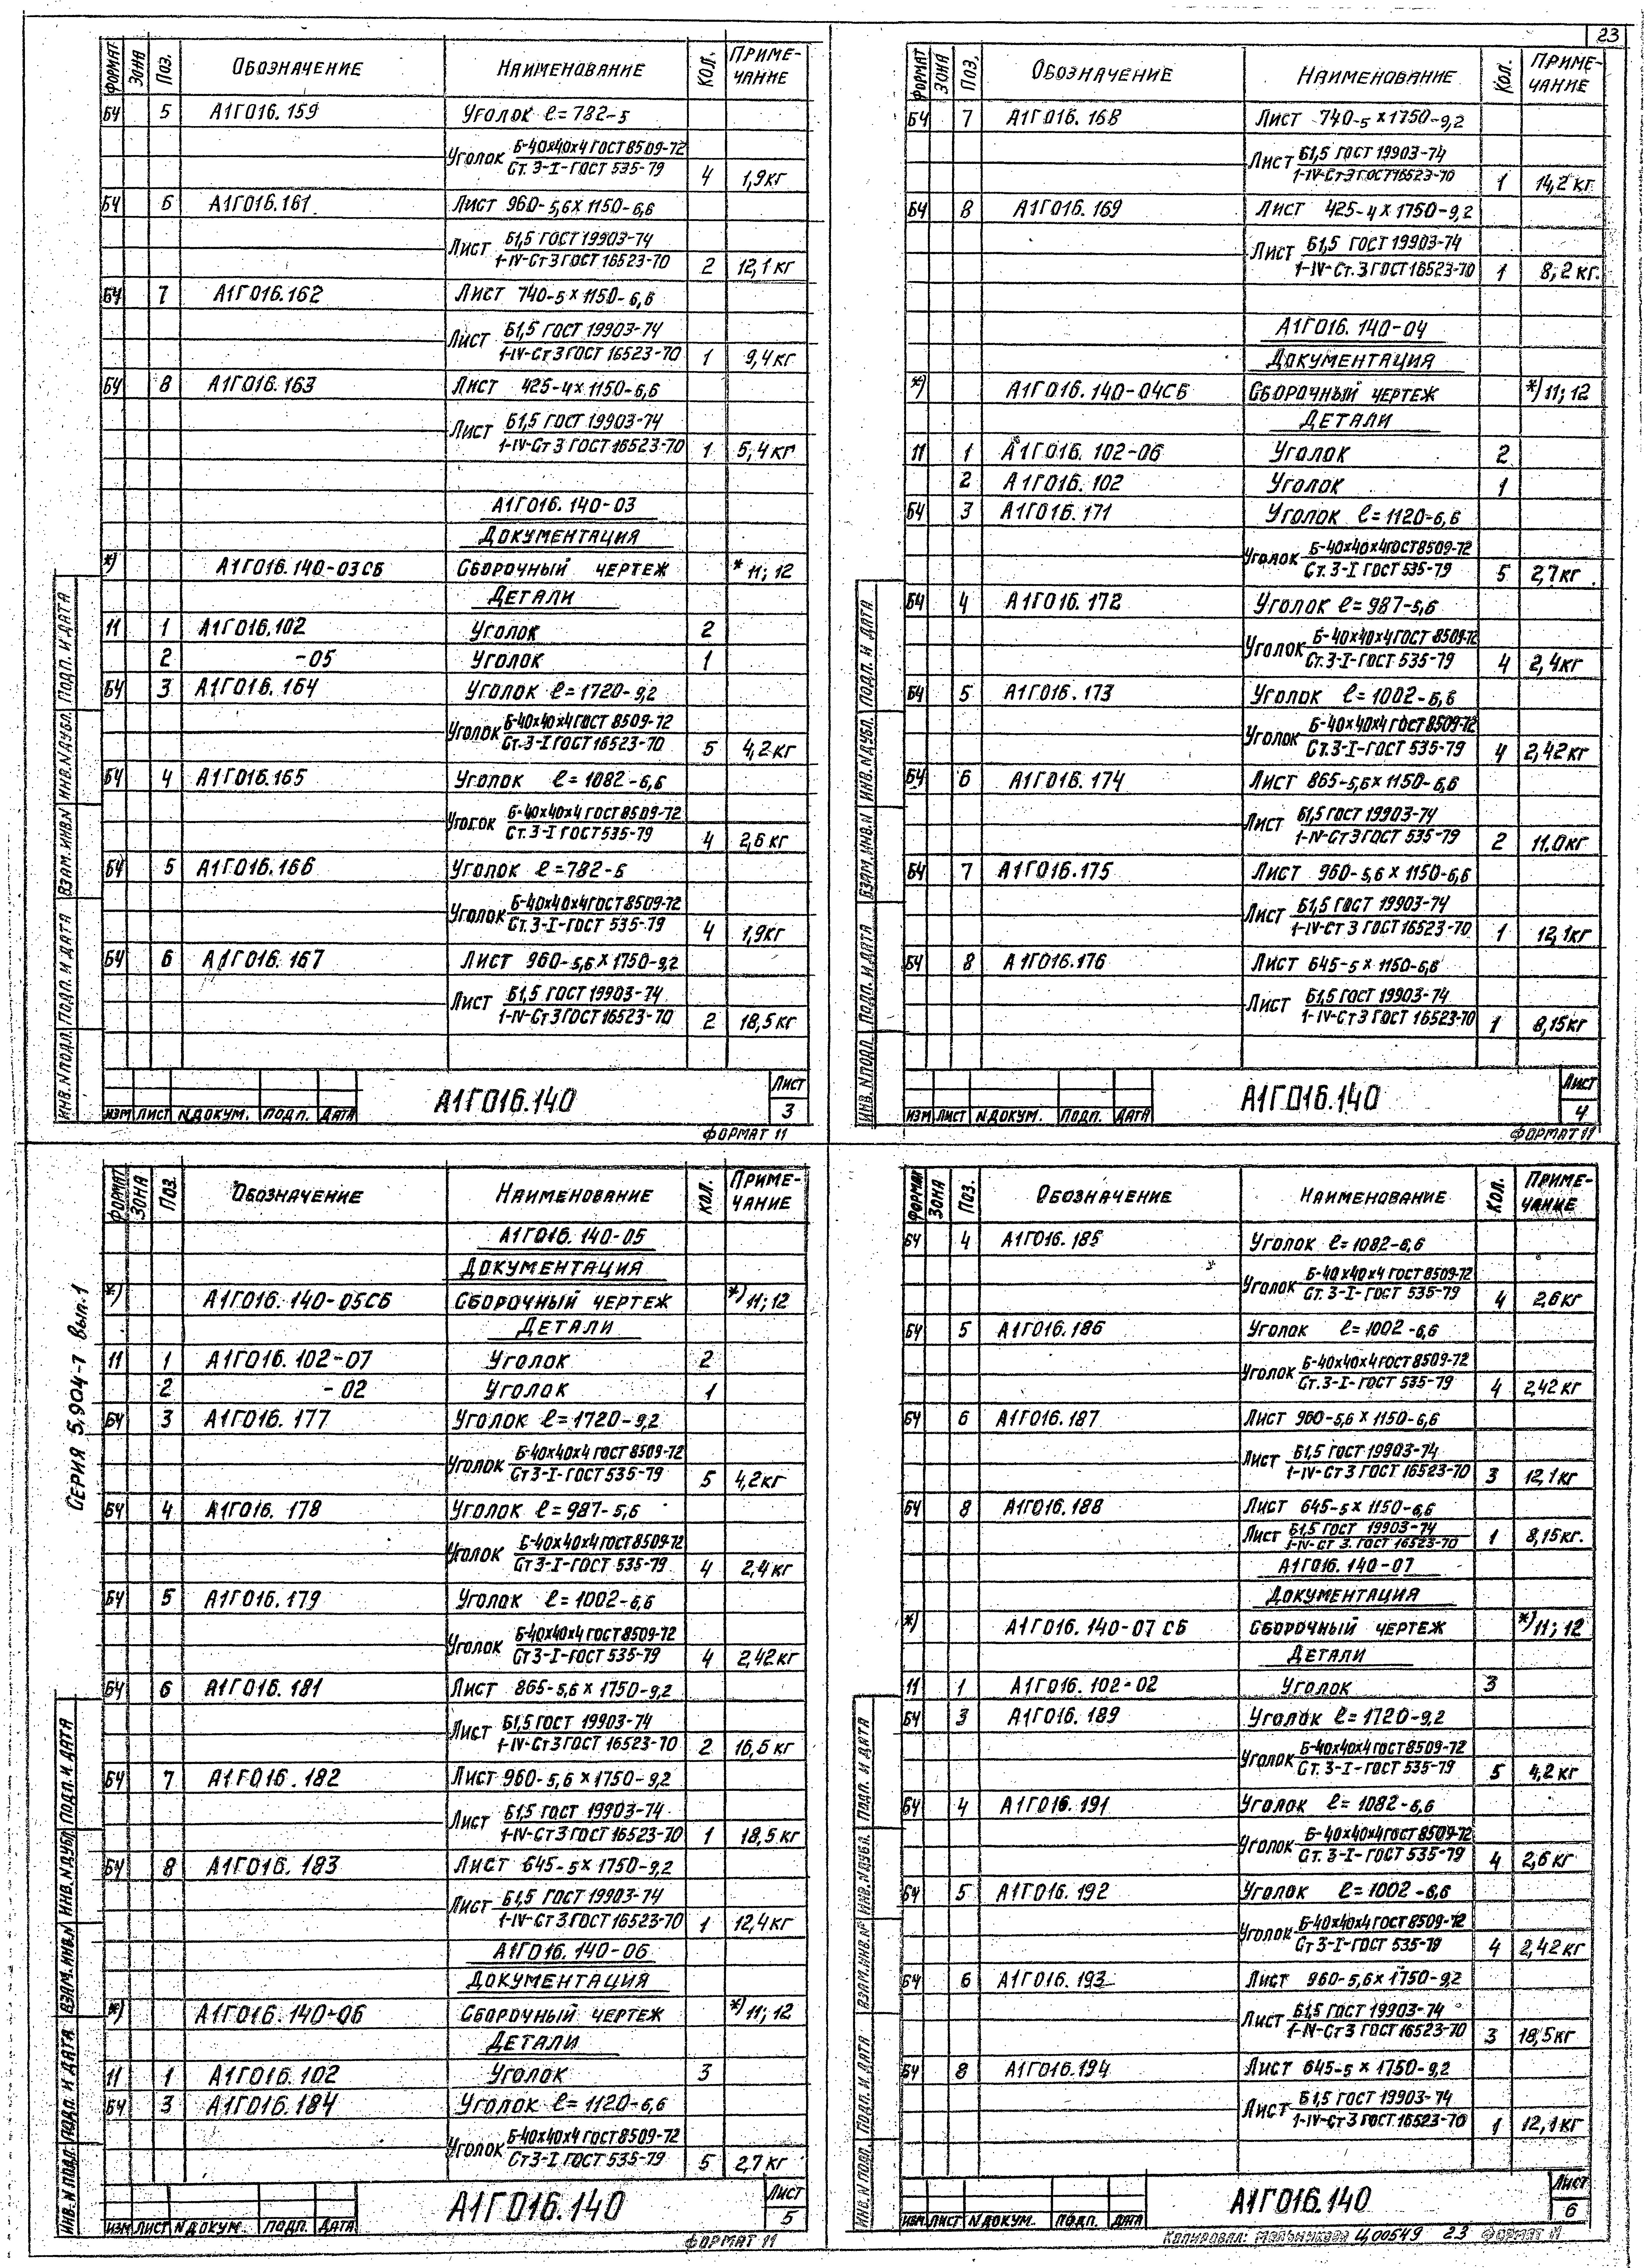 23
ФОРМАТ ЗОНА ПОЗ. ОБОЗНАЧЕНИЕ НАИМЕНОВАНИЕ КОЛ. ПРИМЕ-
ЧАНИЕ
БЧ 5 А1Г016.159 Уголок ℓ=782-5
Уголок Б-40х40х4 ГОСТ 8509-72
Ст. 3-I-ГОСТ 535-79 4 1,9кг
БЧ 6 А1Г016.161 Лист 960-5,6х1150-6,6
Лист Б1,5 ГОСТ 19903-74
1-IV-Ст3 ГОСТ 16523-70 2 12,1кг
БЧ 7 А1Г016.162 Лист 740-5х1150-6,6
Лист Б1,5 ГОСТ 19903-74
1-IV-Ст3 ГОСТ 16523-70 1 9,4кг
БЧ 8 А1Г016.163 Лист 425-4х1150-6,6
Лист Б1,5 ГОСТ 19903-74
1-IV-Ст3 ГОСТ 16523-70 1 5,4кг
А1Г016.140-03
ДОКУМЕНТАЦИЯ
*) А1Г016.140-03СБ СБОРОЧНЫЙ ЧЕРТЕЖ * 11; 12
ДЕТАЛИ
11 1 А1Г016.102 Уголок 2
2 -05 Уголок 1
БЧ 3 А1Г016.164 Уголок ℓ=1720-9,2
Уголок Б-40х40х4 ГОСТ 8509-72
Ст.3-I ГОСТ 16523-70 5 4,2кг
БЧ 4 А1Г016.165 Уголок ℓ=1082-6,6
Уголок Б-40х40х4 ГОСТ 8509-72
Ст.3-I ГОСТ 535-79 4 2,6кг
БЧ 5 А1Г016.166 Уголок ℓ=782-5
Уголок Б-40х40х4 ГОСТ 8509-72
Ст.3-I-ГОСТ 535-79 4 1,9кг
БЧ 6 А1Г016.167 Лист 960-5,6х1750-9,2
Лист Б1,5 ГОСТ 19903-74
1-IV-Ст3 ГОСТ 16523-70 2 18,5кг
ИНВ.N ПОДЛ. ПОДП. И ДАТА ВЗАМ.ИНВ.N ИНВ.N ДУБЛ. ПОДП. И ДАТА
ИЗМ ЛИСТ N ДОКУМ. ПОДП. ДАТА А1Г016.140 Лист 3
ФОРМАТ 11
ФОРМАТ ЗОНА ПОЗ. ОБОЗНАЧЕНИЕ НАИМЕНОВАНИЕ КОЛ. ПРИМЕ-
ЧАНИЕ
БЧ 7 А1Г016.168 Лист 740-5х1750-9,2
Лист Б1,5 ГОСТ 19903-74
1-IV-Ст3 ГОСТ16523-70 1 14,2кг
БЧ 8 А1Г016.169 Лист 425-4х1750-9,2
Лист Б1,5 ГОСТ 19903-74
1-IV-Ст.3 ГОСТ 16523-70 1 8,2кг.
А1Г016.140-04
ДОКУМЕНТАЦИЯ
*) А1Г016.140-04СБ СБОРОЧНЫЙ ЧЕРТЕЖ *) 11; 12
ДЕТАЛИ
11 1 А1Г016.102-06 Уголок 2
2 А1Г016.102 Уголок 1
БЧ 3 А1Г016.171 Уголок ℓ=1120-6,6
Уголок Б-40х40х4 ГОСТ 8509-72
Ст.3-I ГОСТ 535-79 5 2,7кг
БЧ 4 А1Г016.172 Уголок ℓ=987-5,6
Уголок Б-40х40х4 ГОСТ 8509-72
Ст.3-I-ГОСТ 535-79 4 2,4кг
БЧ 5 А1Г016.173 Уголок ℓ=1002-6,6
Уголок Б-40х40х4 ГОСТ 8509-72
Ст.3-I-ГОСТ 535-79 4 2,42кг
БЧ 6 А1Г016.174 Лист 865-5,6х1150-6,6
Лист Б1,5 ГОСТ 19903-74
1-IV-Ст3 ГОСТ 535-79 2 11.0кг
БЧ 7 А1Г016.175 Лист 960-5,6х1150-6,6
Лист Б1,5 ГОСТ 19903-74
1-IV-Ст3 ГОСТ 16523-70 1 12,1кг
БЧ 8 А1Г016.176 Лист 645-5х1150-6,6
Лист Б1,5 ГОСТ 19903-74
1-IV-Ст3 ГОСТ 16523-70 1 8,15кг
ИНВ.N ПОДЛ. ПОДП. И ДАТА ВЗАМ.ИНВ.N ИНВ.N ДУБЛ. ПОДП. И ДАТА
ИЗМ ЛИСТ N ДОКУМ. ПОДП. ДАТА А1Г016.140 Лист 4
ФОРМАТ 11
СЕРИЯ 5.904-7 Вып.1
ФОРМАТ ЗОНА ПОЗ. ОБОЗНАЧЕНИЕ НАИМЕНОВАНИЕ КОЛ. ПРИМЕ-
ЧАНИЕ
А1Г016.140-05
ДОКУМЕНТАЦИЯ
*) А1Г016.140-05СБ СБОРОЧНЫЙ ЧЕРТЕЖ *) 11; 12
ДЕТАЛИ
11 1 А1Г016.102-07 Уголок 2
2 -02 Уголок 1
БЧ 3 А1Г016.177 Уголок ℓ=1720-9,2
Уголок Б-40х40х4 ГОСТ 8509-72
Ст3-I-ГОСТ 535-79 5 4,2кг
БЧ 4 А1Г016.178 Уголок ℓ=987-5,6
Уголок Б-40х40х4 ГОСТ 8509-72
Ст3-I-ГОСТ 535-79 4 2,4кг
БЧ 5 А1Г016.179 Уголок ℓ=1002-6,6
Уголок Б-40х40х4 ГОСТ 8509-72
Ст3-I-ГОСТ 535-79 4 2,42кг
БЧ 6 А1Г016.181 Лист 865-5,6х1750-9,2
Лист Б1,5 ГОСТ 19903-74
1-IV-Ст3 ГОСТ 16523-70 2 16,5кг
БЧ 7 А1Г016.182 Лист 960-5,6х1750-9,2
Лист Б1,5 ГОСТ 19903-74
1-IV-Ст3 ГОСТ 16523-70 1 18,5кг
БЧ 8 А1Г016.183 Лист 645-5х1750-9,2
Лист Б1,5 ГОСТ 19903-74
1-IV-Ст3 ГОСТ 16523-70 1 12,4кг
А1Г016.140-06
ДОКУМЕНТАЦИЯ
*) А1Г016.140-06 СБОРОЧНЫЙ ЧЕРТЕЖ *) 11; 12
ДЕТАЛИ
11 1 А1Г016.102 Уголок 3
БЧ 3 А1Г016.184 Уголок ℓ=1120-6,6
Уголок Б-40х40х4 ГОСТ 8509-72
Ст3-I ГОСТ 535-79 5 2,7кг
ИНВ.N ПОДЛ. ПОДП. И ДАТА ВЗАМ.ИНВ.N ИНВ.N ДУБЛ. ПОДП. И ДАТА
ИЗМ ЛИСТ N ДОКУМ. ПОДП. ДАТА А1Г016.140 Лист 5
ФОРМАТ 11
ФОРМАТ ЗОНА ПОЗ. ОБОЗНАЧЕНИЕ НАИМЕНОВАНИЕ КОЛ. ПРИМЕ-
ЧАНИЕ
БЧ 4 А1Г016.185 Уголок ℓ=1082-6,6
Уголок Б-40х40х4 ГОСТ 8509-72
Ст.3-I-ГОСТ 535-79 4 2,6кг
БЧ 5 А1Г016.186 Уголок ℓ=1002-6,6
Уголок Б-40х40х4 ГОСТ 8509-72
Ст.3-I-ГОСТ 535-79 4 2,42кг
БЧ 6 А1Г016.187 Лист 960-5,6х1150-6,6
Лист Б1,5 ГОСТ 19903-74
1-IV-Ст3 ГОСТ 16523-70 3 12,1кг
БЧ 8 А1Г016.188 Лист 645-5х1150-6,6
Лист Б1,5 ГОСТ 19903-74
1-IV-Ст 3. ГОСТ 16523-70 1 8,15кг.
А1Г016.140-07
ДОКУМЕНТАЦИЯ
*) А1Г016.140-07 СБ СБОРОЧНЫЙ ЧЕРТЕЖ *) 11; 12
ДЕТАЛИ
11 1 А1Г016.102-02 Уголок 3
БЧ 3 А1Г016.189 Уголок ℓ=1720-9,2
Уголок Б-40х40х4 ГОСТ 8509-72
Ст.3-I-ГОСТ 535-79 5 4,2кг
БЧ 4 А1Г016.191 Уголок ℓ=1082-6,6
Уголок Б-40х40х4 ГОСТ 8509-72
Ст.3-I-ГОСТ 535-79 4 2,6кг
БЧ 5 А1Г016.192 Уголок ℓ=1002-6,6
Уголок Б-40х40х4 ГОСТ 8509-72
Ст3-I-ГОСТ 535-79 4 2,42кг
БЧ 6 А1Г016.193 Лист 960-5,6х1750-9,2
Лист Б1,5 ГОСТ 19903-74
1-IV-Ст3 ГОСТ 16523-70 3 18,5кг
БЧ 8 А1Г016.194 Лист 645-5х1750-9,2
Лист Б1,5 ГОСТ 19903-74
1-IV-Ст3 ГОСТ 16523-70 1 12,1кг
ИНВ.N ПОДЛ. ПОДП. И ДАТА ВЗАМ.ИНВ.N° ИНВ.N ДУБЛ. ПОДП. И ДАТА
ИЗМ ЛИСТ N ДОКУМ. ПОДП. ДАТА А1Г016.140 Лист 6
Копировал: Мельникова Ц00549 23 ФОРМАТ 11